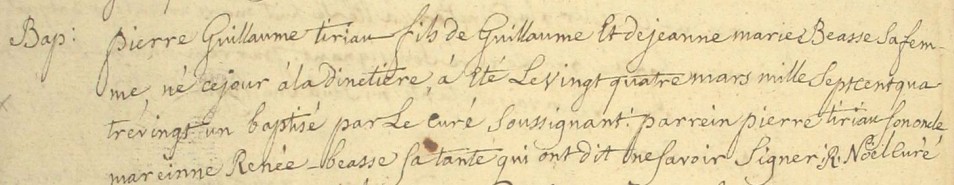 Bap: pierre Guillaume tiriau fils de Guillaume Et de jeanne marie Beasse Sa fem-
me, né ce jour à la dinetiere, a Eté Le vingt quatre mars mille Septcentqua
trevingt un baptisé par Le Curé Soussignant: parrein pierre tiriau son oncle
mareinne Renée beasse sa tante qui ont dit ne savoir Signer R: Noël Curé